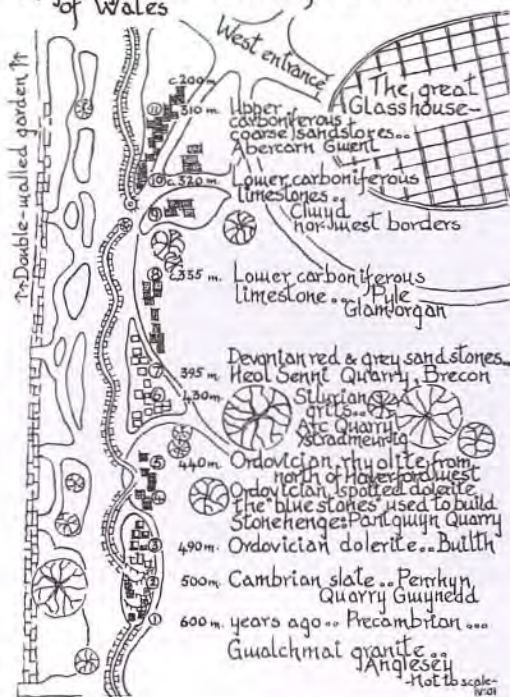 of Wales
West entrance
The great
Glasshouse-
↑↑Double-walled garden↑↑
c.200m.
⑪ 310 m. Upper
carboniferous
coarse sandstones..
Abercarn Gwent
⑩ c.320m. Lower carboniferous
limestones..
Clwyd
nor'west borders
⑨
⑧ c.355 m. Lower carboniferous
limestone... Pyle
Glamorgan
Devonian red & grey sandstones..
⑦ 395 m. Heol Senni Quarry, Brecon
⑥ 430m. Silurian
grits..
Arc Quarry
Ystradmeurig
⑤ 440m. Ordovician rhyolite from
north of Haverfordwest
④ Ordovician spotted dolerite
the 'blue stones' used to build
Stonehenge: Pantgwyn Quarry
③ 490m. Ordovician dolerite.. Builth
② 500m. Cambrian slate.. Penrhyn
Quarry Gwynedd
① 600m. years ago.. Precambrian...
Gwalchmai granite..
Anglesey
-Not to scale-